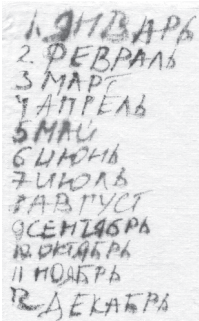 1. ЯНВАРЬ
2. ФЕВРАЛЬ
3 МАРТ
4 АПРЕЛЬ
5 МАЙ
6 ИЮНЬ
7 ИЮЛЬ
8 АВГУСТ
9 СЕНТЯБРЬ
10 ОКТЯБРЬ
11 НОЯБРЬ
12 ДЕКАБРЬ